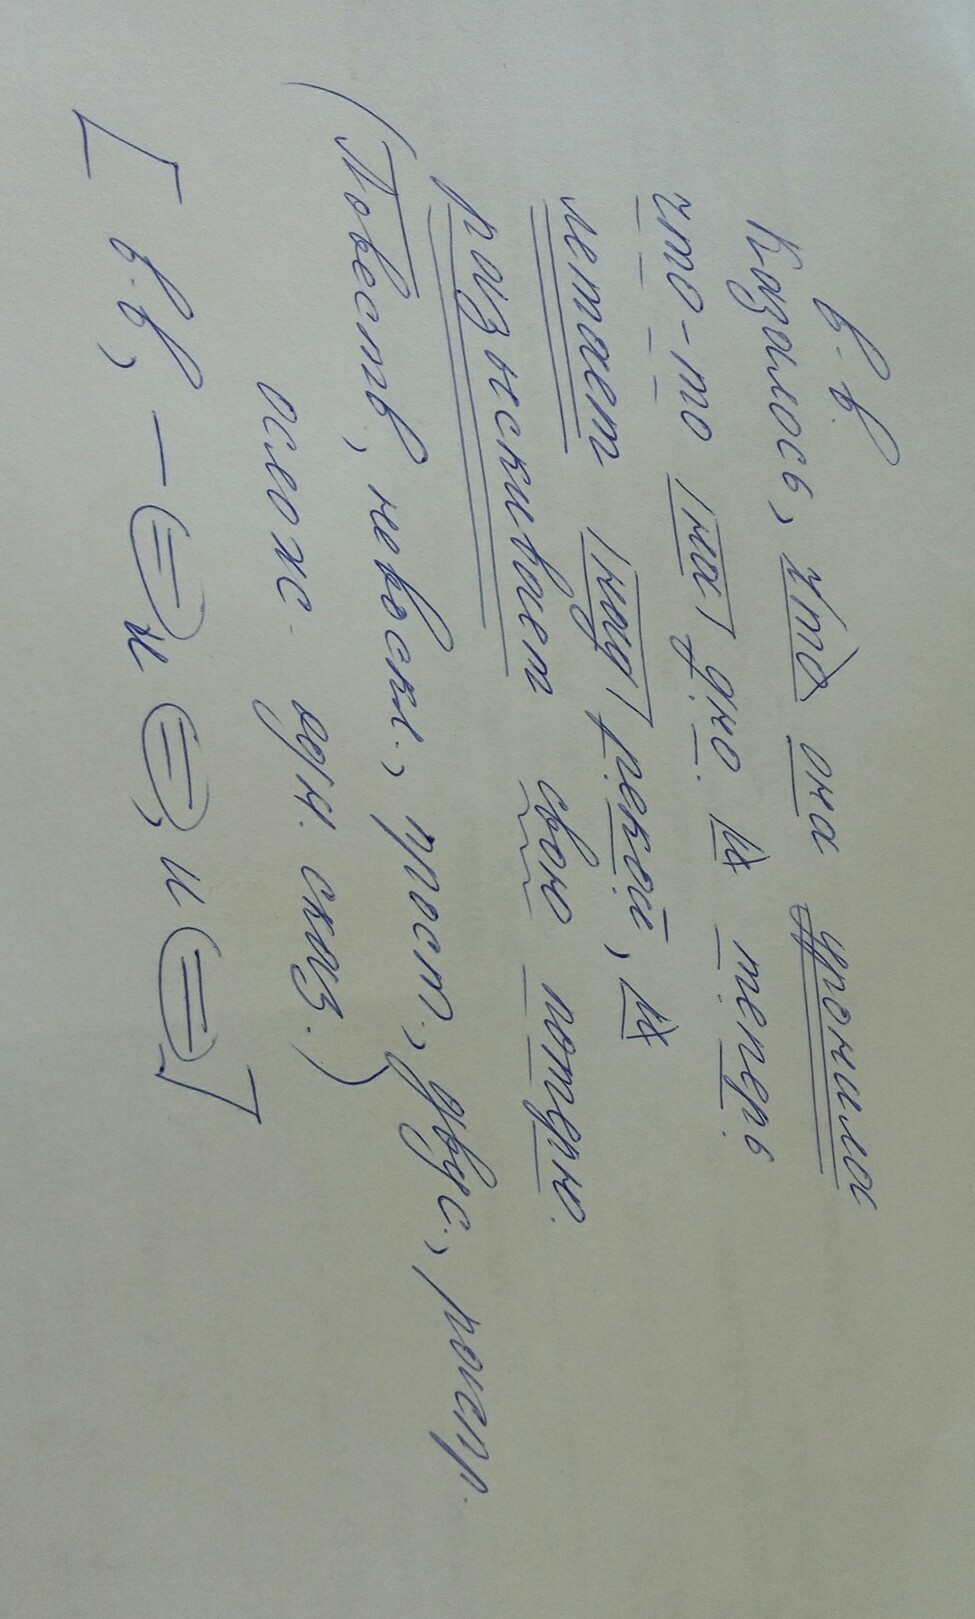 в.в.
Казалось, что она уронила
что-то на дно и теперь
летает над рекой, и
разыскивает свою потерю.
(Повеств, невоскл., прост., двус., распр.
ослож. одн. сказ.)
[в.в, — = и =, и =]